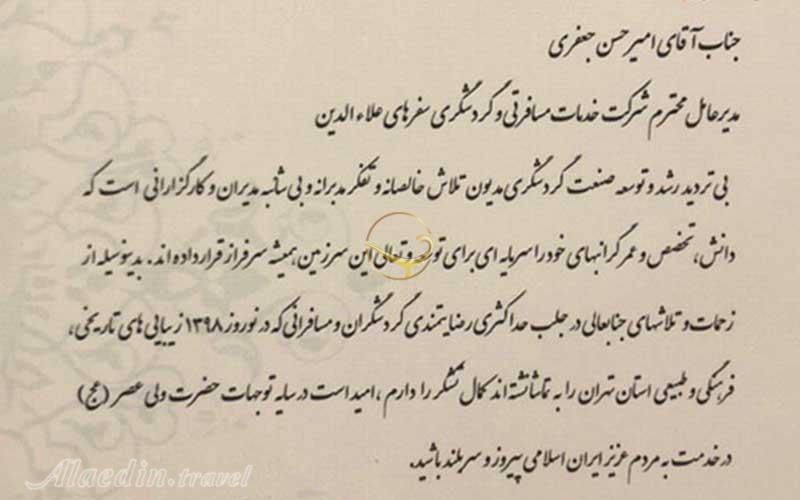 جناب آقای امیرحسن جعفری
مدیرعامل محترم شرکت خدمات مسافرتی و گردشگری سفرهای علاءالدین
بی تردید رشد و توسعه صنعت گردشگری مدیون تلاش خالصانه و تفکر مدبرانه و بی شائبه مدیران و کارگزارانی است که
دانش، تخصص و عمر گرانبهای خود را سرمایه ای برای توسعه و تعالی این سرزمین همیشه سرفراز قرار داده اند. بدینوسیله از
زحمات و تلاشهای جنابعالی در جلب حداکثری رضایتمندی گردشگران و مسافرانی که در نوروز ۱۳۹۸ زیبایی های تاریخی،
فرهنگی و طبیعی استان تهران را به تماشا نشسته اند کمال تشکر را دارم، امید است در سایه توجهات حضرت ولی عصر (عج)
در خدمت به مردم عزیز ایران اسلامی پیروز و سربلند باشید.
Alaedin.travel